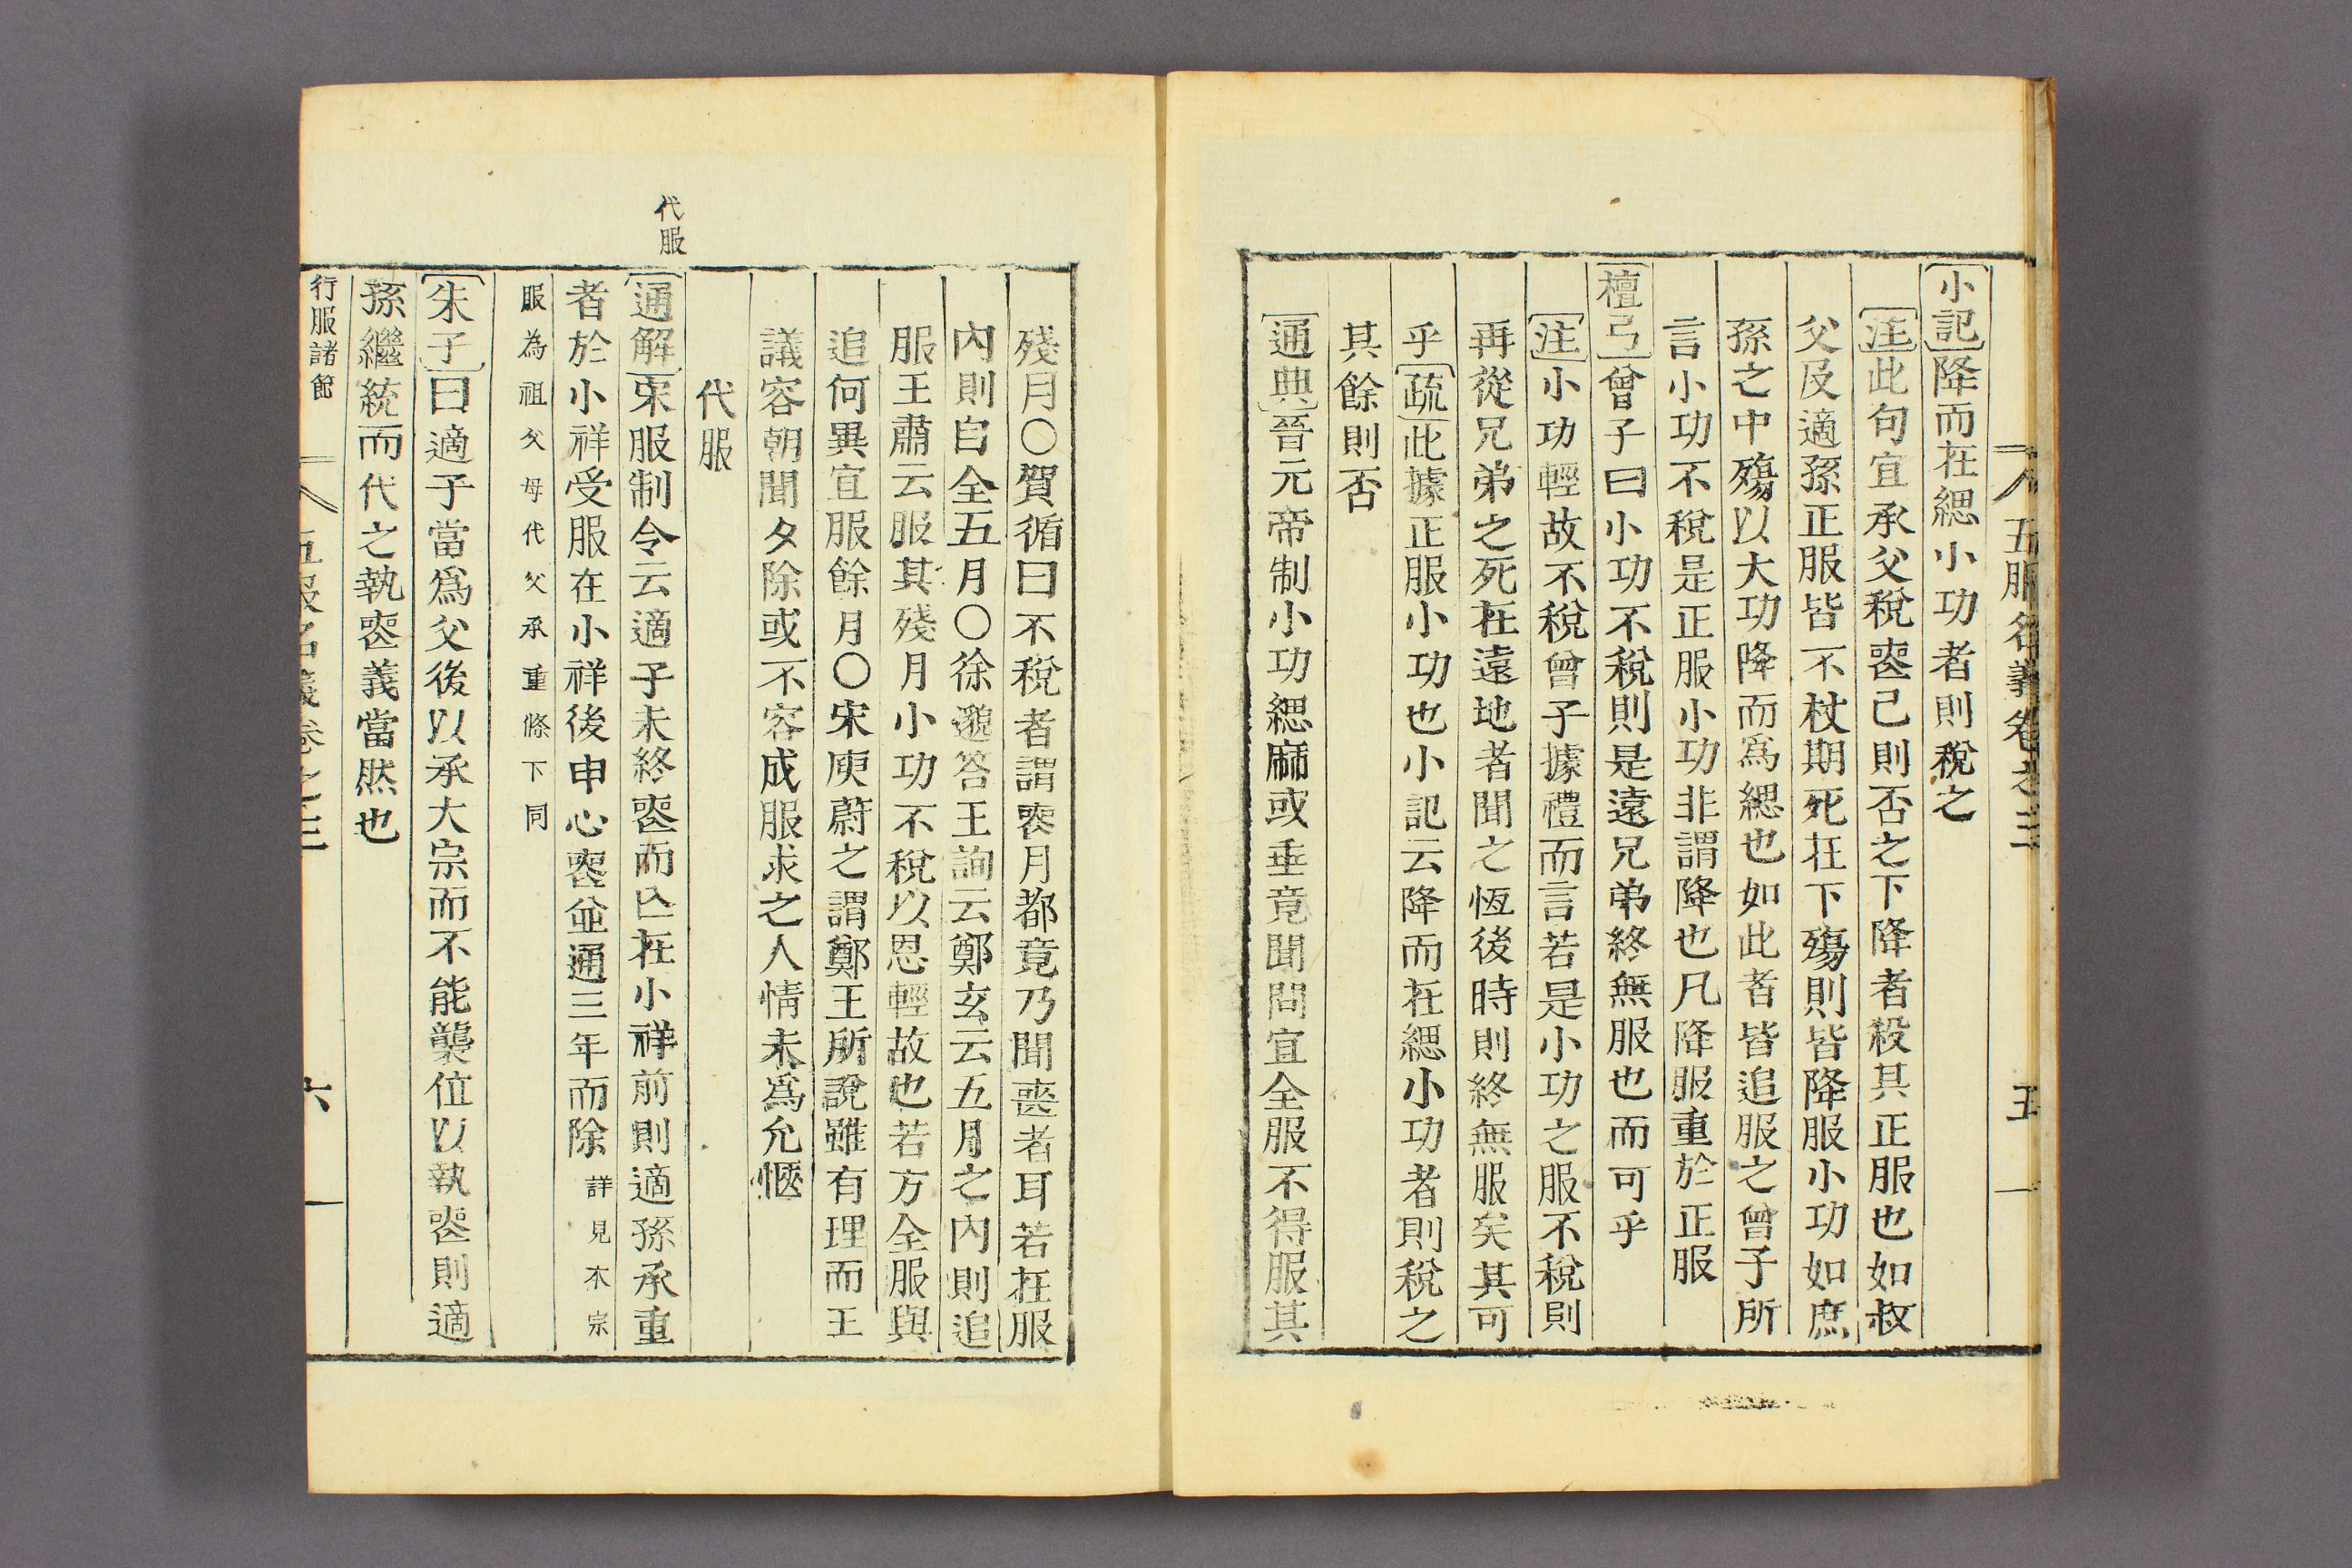 五服名義卷之三
五
小記降而在緦小功者則稅之
注此句宜承父稅喪己則否之下降者殺其正服也如叔
父及適孫正服皆不杖期死在下殤則皆降服小功如庶
孫之中殤以大功降而爲緦也如此者皆追服之曾子所
言小功不稅是正服小功非謂降也凡降服重於正服
檀弓曾子曰小功不稅則是遠兄弟終無服也而可乎
注小功輕故不稅曾子據禮而言若是小功之服不稅則
再從兄弟之死在遠地者聞之恆後時則終無服矣其可
乎疏此據正服小功也小記云降而在緦小功者則稅之
其餘則否
通典晉元帝制小功緦麻或垂竟聞問宜全服不得服其
殘月〇賀循曰不稅者謂喪月都竟乃聞喪者耳若在服
內則自全五月〇徐邈答王詢云鄭玄云五月之內則追
服王肅云服其殘月小功不稅以恩輕故也若方全服與
追何異宜服餘月〇宋庾蔚之謂鄭王所說雖有理而王
議容朝聞夕除或不容成服求之人情未爲允愜
代服
代服
通解宋服制令云適子未終喪而亾在小祥前則適孫承重
者於小祥受服在小祥後申心喪並通三年而除詳見本宗
服為祖父母代父承重條下同
朱子曰適子當爲父後以承大宗而不能襲位以執喪則適
孫繼統而代之執喪義當然也
行服諸節
五服名義卷之三
六